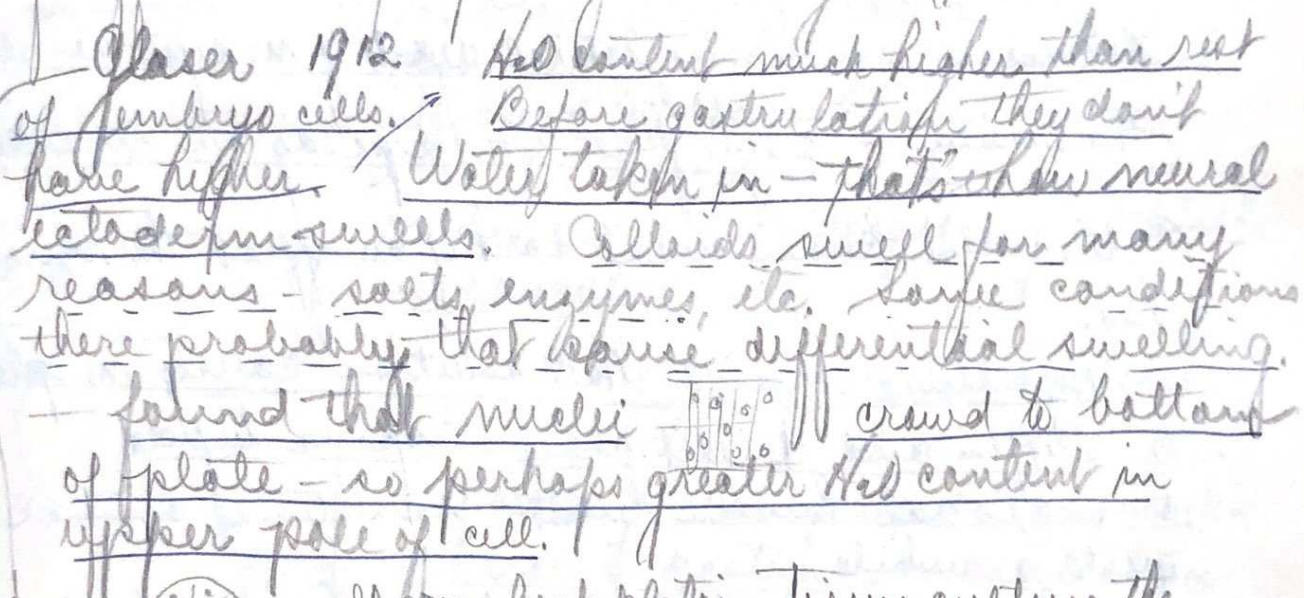 Glaser 1912. H2O content much higher than rest
of embryo cells. Before gastrulation they don't
have higher. Water taken in – that's how neural
ectoderm swells. Colloids swell for many
reasons – salts, enzymes, etc. Some conditions
there probably that cause differential swelling.
– found that nuclei crowd to bottom
of plate – so perhaps greater H2O content in
upper pole of cell.